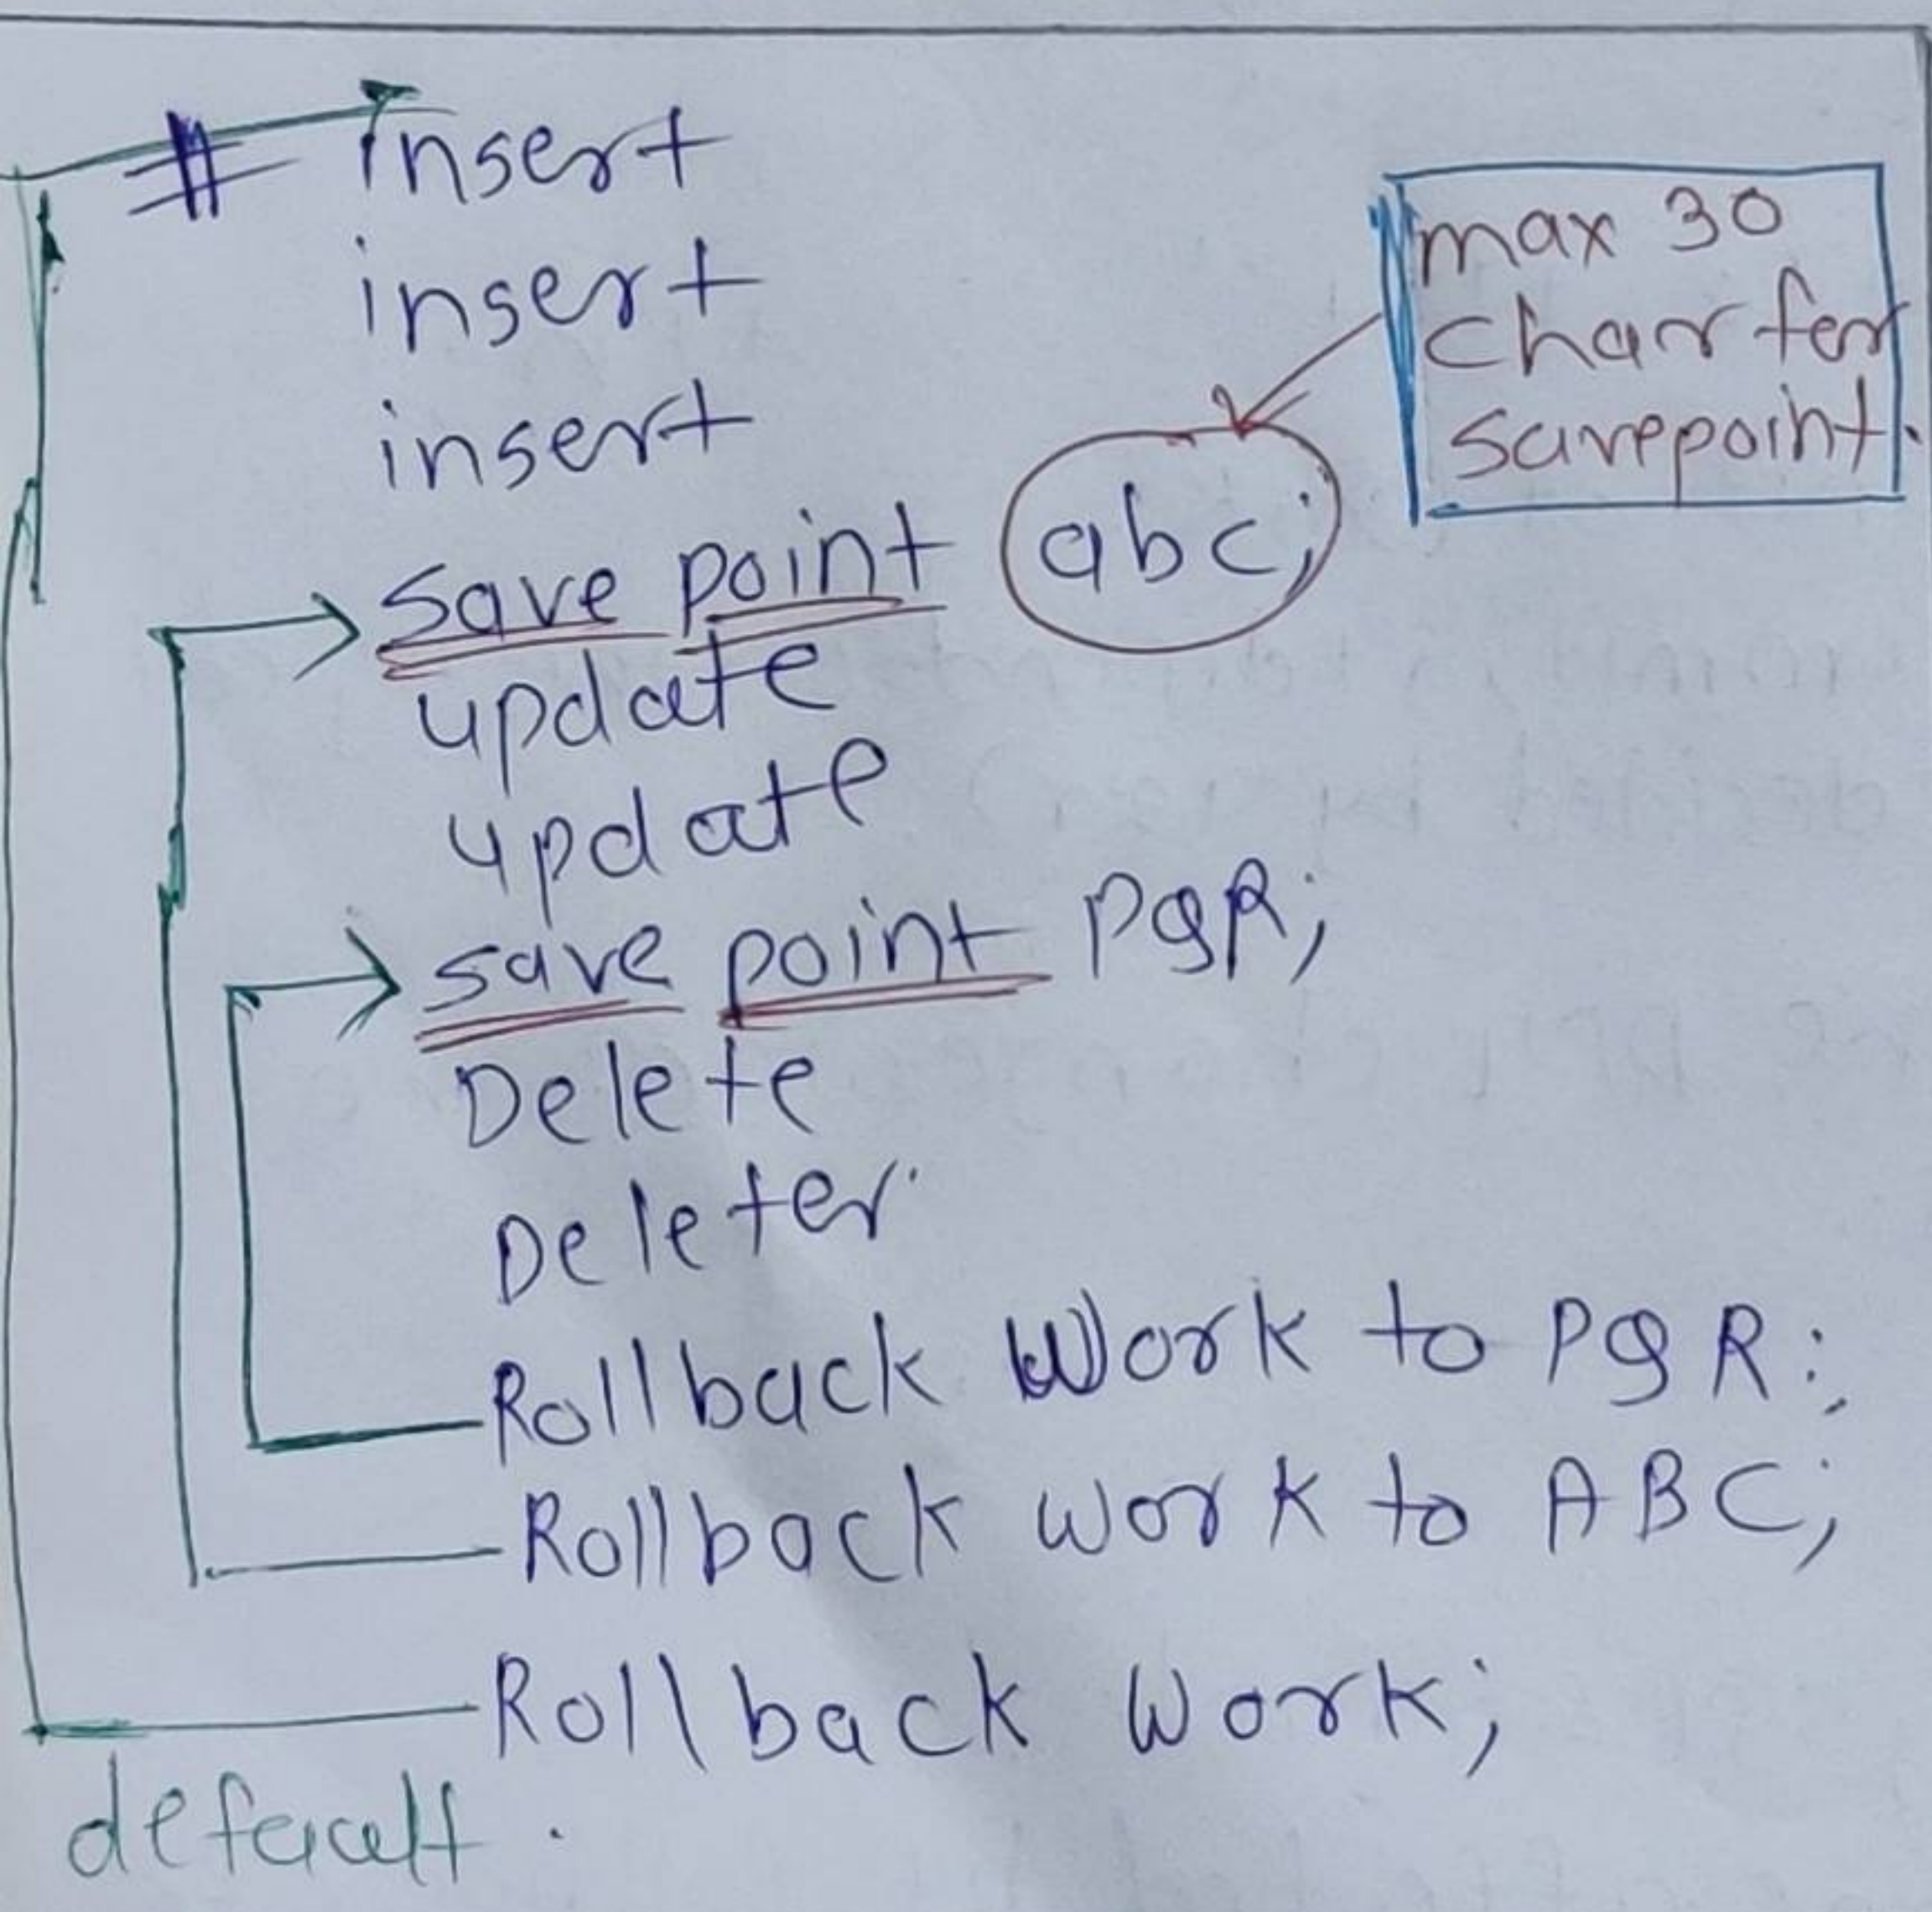 # insert
insert
insert
max 30
char for
savepoint.
save point abc;
update
update
save point PQR;
Delete
Deleter
Rollback Work to PQR:;
Rollback work to ABC;
Rollback Work;
default.